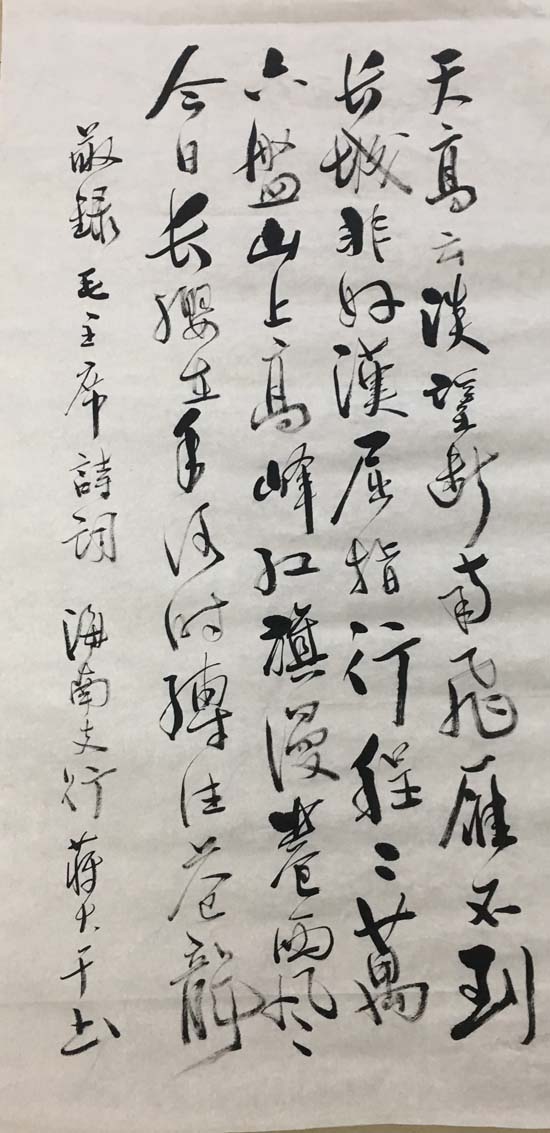 天高云淡望断南飛雁不到
长城非好漢屈指行程二萬
六盤山上高峰红旗漫卷西风
今日长缨在手何时缚住苍龍
敬録毛主席詩詞 海南支行 蒋大干书